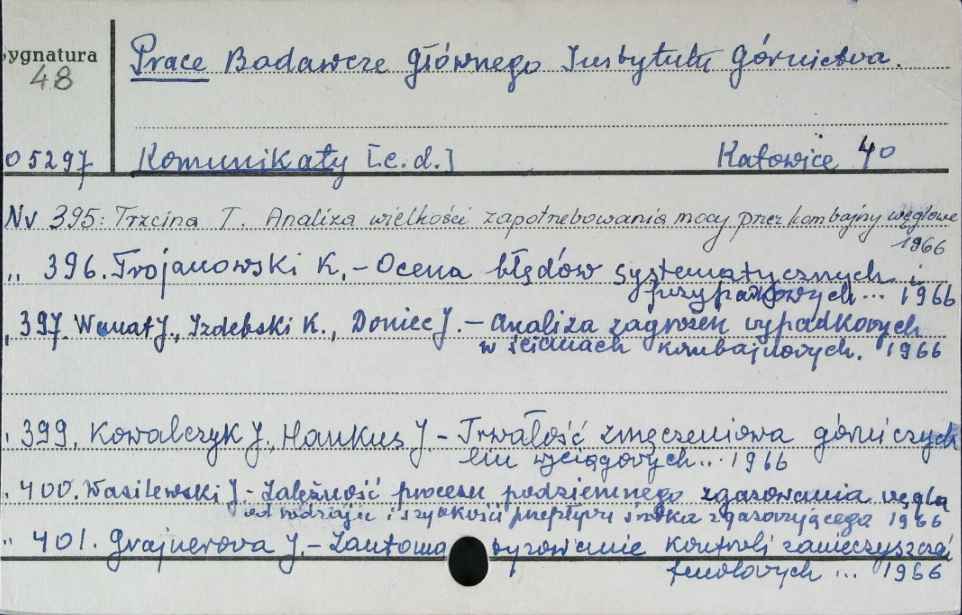 ygnatura
48
Prace Badawcze Głównego Instytutu Górnictwa.
05297 Komunikaty [c.d.] Katowice 40
Nv 395: Trzcina T. Analiza wielkości zapotrzebowania mocy przez kombajny węglowe
1966
„ 396. Trojanowski K. – Ocena błędów systematycznych i
przypadkowych... 1966
397. Wanat J., Izdebski K., Doniec J. – Analiza zagrożeń wypadkowych
w ścianach kombajnowych. 1966
399. Kowalczyk J., Hankus J – Trwałość zmęczeniowa górniczych
lin wyciągowych... 1966
400. Wasilewski J. – Zależność procesu podziemnego zgazowania węgla
od rodzaju i szybkości przepływu środka zgazowującego 1966
„ 401. Grajnerova J. – kontroli zanieczyszczeń
fenolowych ... 1966